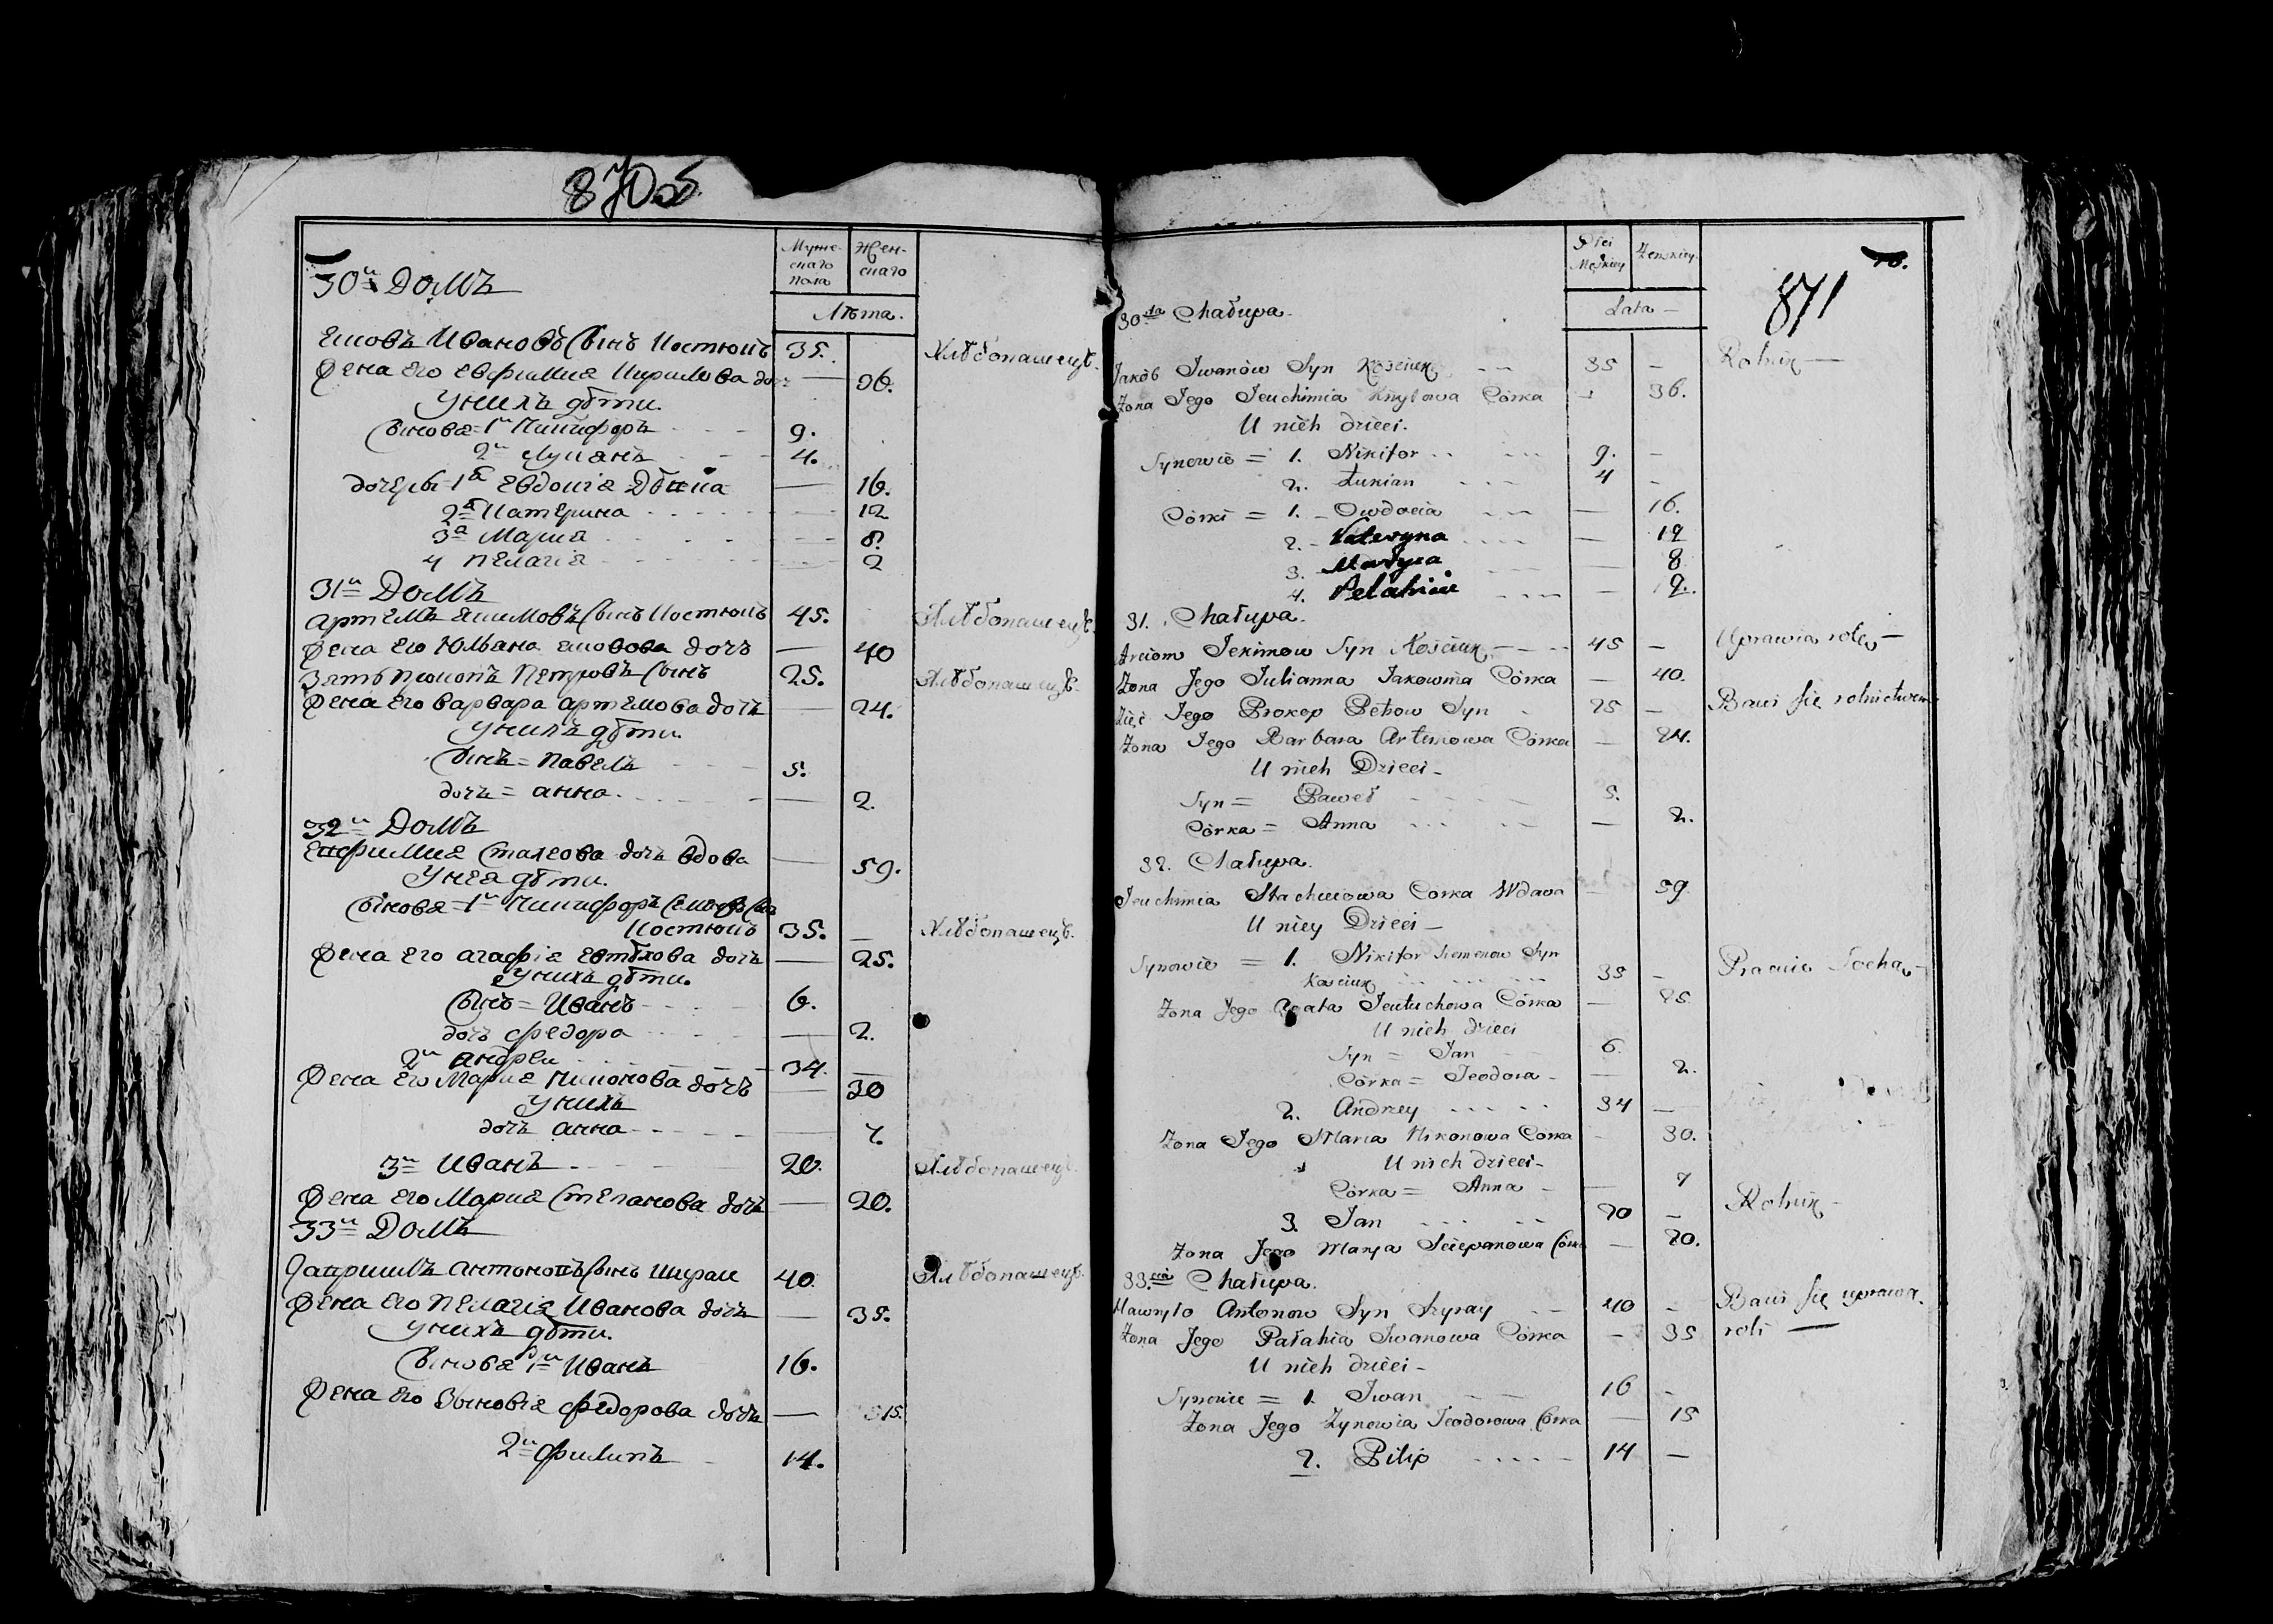 870 об
Мужескаго пола
Женскаго
Лѣта.
30й Домъ
Яковъ Ивановъ сынъ Костюкъ 35. Хлѣбопашецъ.
Жена его Евфимия Кирилова дочь — 36.
У нихъ дѣти.
Сыновья = 1й Никифоръ 9.
2й Лукянъ 4.
дочери = 1я Евдокия Дѣвка — 16.
2я Катерина 12
3я Мария 8.
4 Пелагия 2
31й Домъ
Артемъ Якимовъ сынъ Костюкъ 45. Хлѣбопашецъ.
Жена его Юльяна Яковова дочь — 40
Зять Прокопъ Петровъ сынъ 25. Хлѣбопашецъ.
Жена его Варвара Артемова дочь — 24.
У нихъ дѣти.
Сынъ = Павелъ 5.
дочь = Анна — 2.
32й Домъ
Евфимия Стахеова дочь вдова — 59.
У нея дѣти.
Сыновья = 1й Никифоръ Семеновъ сынъ
Костюкъ 35. — Хлѣбопашецъ.
Жена его Агафия Евтѣхова дочь — 25.
У нихъ дѣти.
Сынъ = Иванъ 6.
дочь Федора — 2.
2й Андреи 34. —
Жена его Мария Никонова дочь — 30
У нихъ
дочь Анна — 7.
3й Иванъ 20. Хлѣбопашецъ.
Жена его Мария Степанова дочь — 20.
33й Домъ
Гаврилъ Антоновъ сынъ Шираи 40. Хлѣбопашецъ.
Жена его Пелагия Иванова дочь — 35.
У нихъ дѣти.
Сыновья 1й Иванъ 16.
Жена его Зыновия Федорова дочь — 15.
2й Филипъ 14.
Płci Męskiey
Żenskiey
Lata —
871
30ta Chałupa.
Jakób Iwanów Syn Kościuk 35 — Rolnik —
Żona Jego Jeuchimia Kiryłowa Córka — 36.
U nich dzieci.
Synowie = 1. Nikifor 9. —
2. Łukian 4 —
Córki = 1. Owdocia — 16.
2. Kateryna — 12
3. Maryia — 8
4. Pelahia — 2.
31. Chałupa.
Arciom Jekimow Syn Kościuk 45 — Uprawia rolę —
Żona Jego Julianna Jakowowa Córka — 40.
Zięć Jego Prokop Petrow Syn 25 — Bawi się rolnictwem
Żona Jego Barbara Artemowa Córka — 24.
U nich Dzieci —
Syn = Paweł 5.
Córka = Anna — 2.
32. Chałupa.
Jeuchimia Stachiejowa Corka Wdowa — 59.
U niey Dzieci —
Synowie = 1. Nikifor Siemenow Syn
Kościuk 35 — Pracuie Sochą —
Żona Jego Agata Jeutuchowa Córka — 25.
U nich dzieci
Syn = Jan 6.
Córka = Teodora — 2.
2. Andrzey 34 —
Żona Jego Maria Nikonowa Córka — 30.
U nich dzieci —
Córka = Anna — 7
3. Jan 20 — Rolnik —
Żona Jego Marya Sciepanowa Córka — 20.
33cia Chałupa.
Hawryło Antonow Syn Szyray 40 — Bawi się uprawą
Żona Jego Pałahia Iwanowa Córka — 35 roli —
U nich dzieci —
Synowie = 1. Iwan 16 —
Żona Jego Zynowia Teodorowa Córka — 15
2. Pilip 14 —